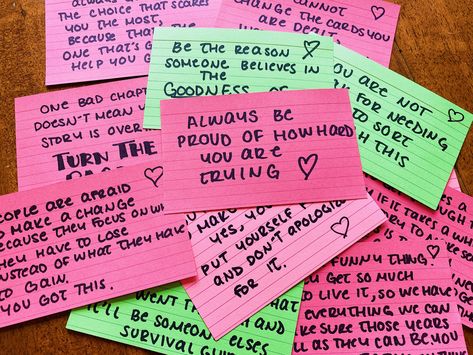 ALWAYS
THE CHOICE THAT SCARES
YOU THE MOST,
BECAUSE THAT
ONE THAT'S G
HELP YOU G
CANNOT
CHANGE THE CARDS YOU
ARE DEALT
BE THE REASON
SOMEONE BELIEVES IN
THE
GOODNESS OF
YOU ARE NOT
FOR NEEDING
TO SORT
THIS
ONE BAD CHAPT
DOESN'T MEAN
STORY IS OVER
TURN THE
ALWAYS BE
PROUD OF HOW HARD
YOU ARE
TRYING
PEOPLE ARE AFRAID
TO MAKE A CHANGE
BECAUSE THEY FOCUS ON WH
THEY HAVE TO LOSE
INSTEAD OF WHAT THEY HAVE
TO GAIN.
YOU GOT THIS.
MAKE
YES, YOU
PUT YOURSELF F
AND DON'T APOLOGI
FOR IT.
IF IT TAKES A W
FUNNY THING
GET SO MUCH
TO LIVE IT, SO WE HAV
EVERYTHING WE CAN
MAKE SURE THOSE YEARS
AS THEY CAN BE. YOU
WENT TH
AND
IT'LL BE SOMEONE ELSES
SURVIVAL GUI